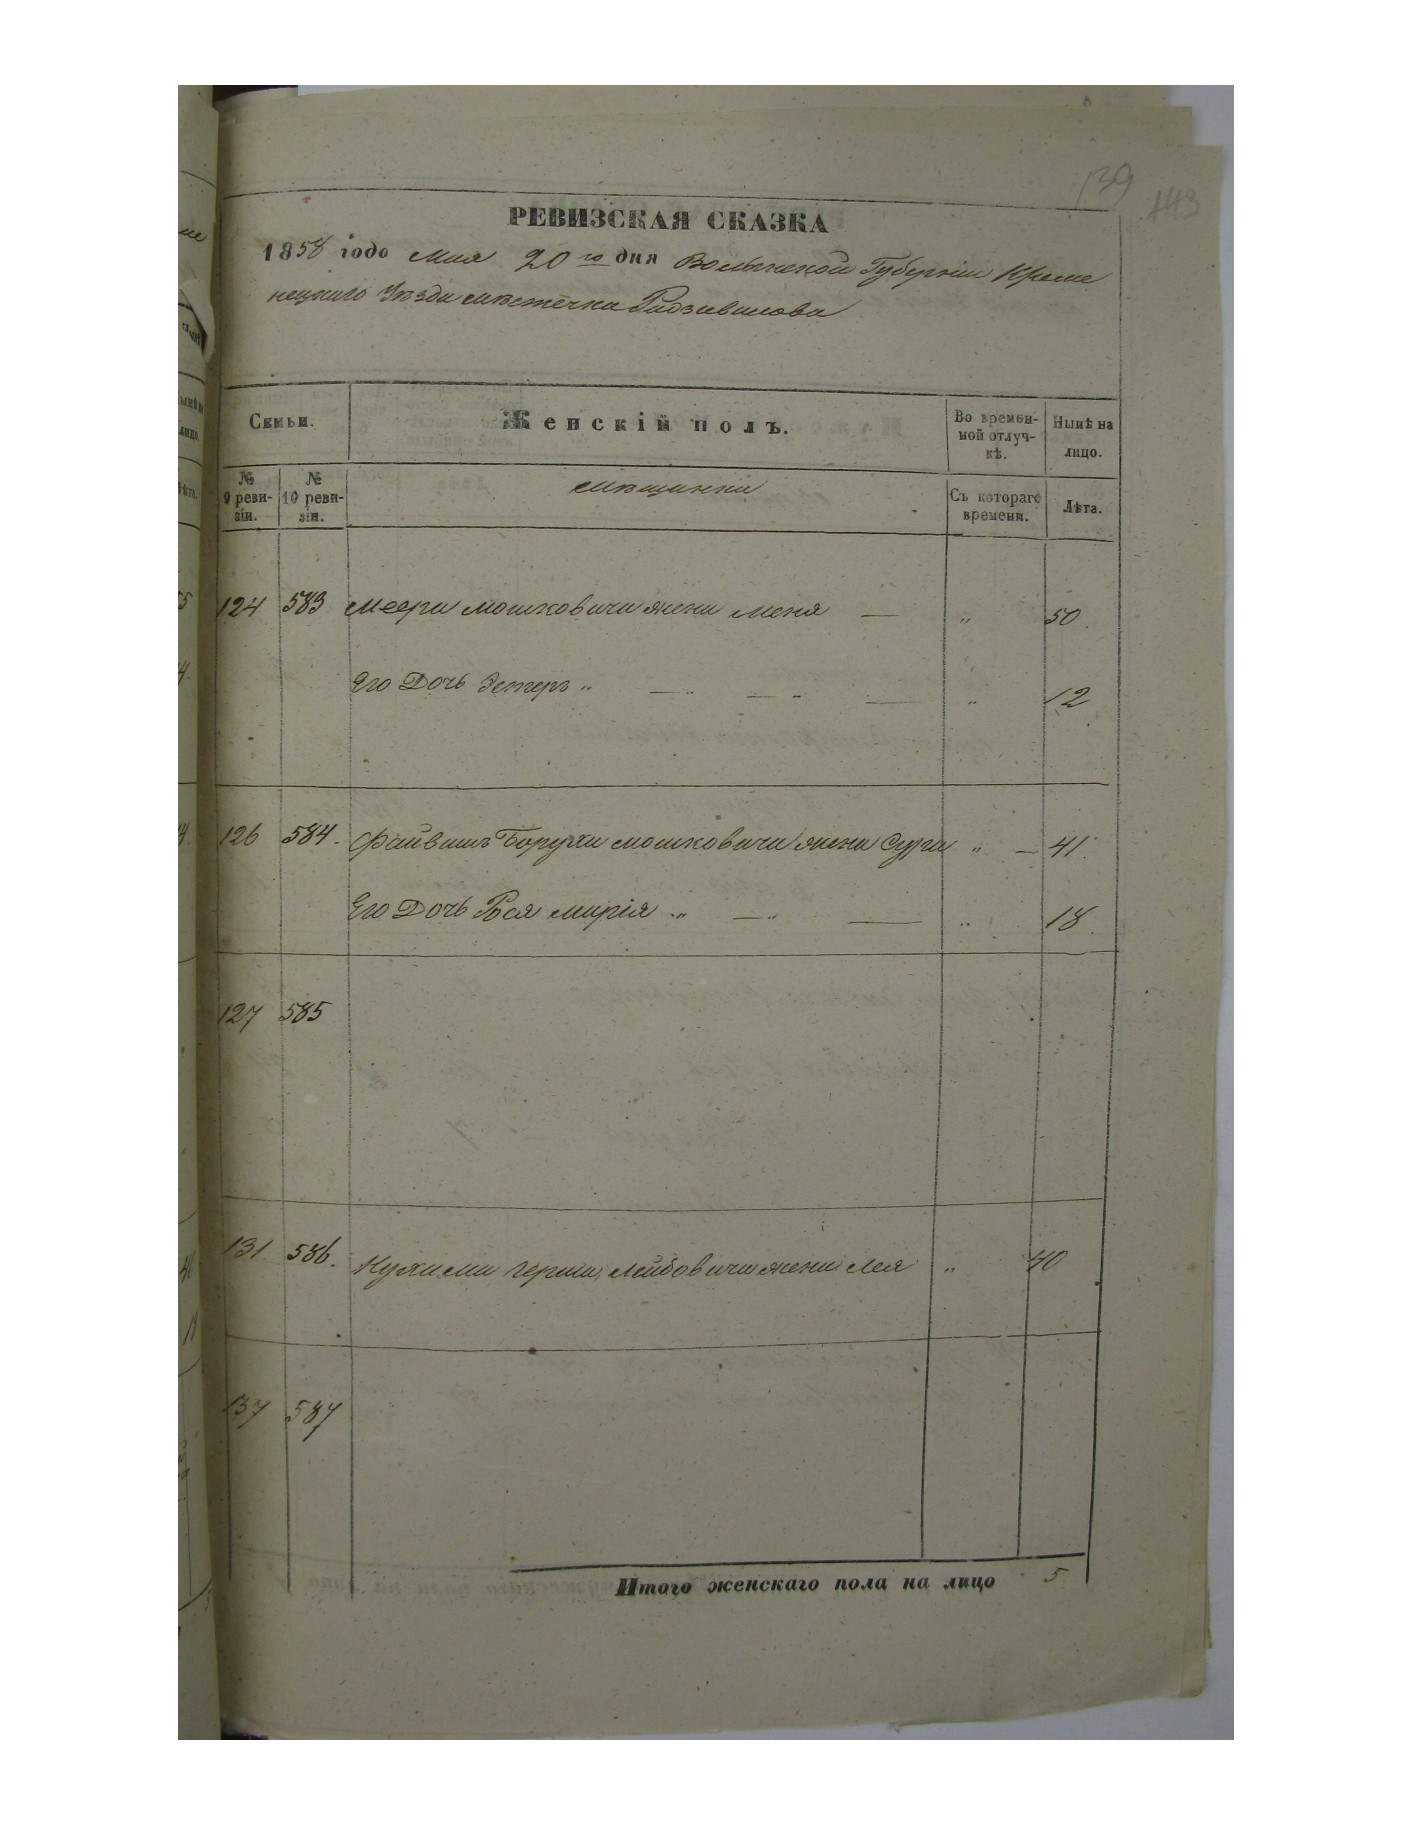 139
143
РЕВИЗСКАЯ СКАЗКА
1858 года Мая 20 го дня Волынской Губерніи Креме
нецкаго Уезда местечка Радзивилова
Семьи.
Женскій полъ.
Во времен-
ной отлуч-
кѣ.
Нынѣ на
лицо.
№
9 реви-
зіи.
№
10 реви-
зіи.
мещанки
Съ котораго
времени.
Лѣта.
124 583 Меера Мошковича жена Меня — „ 50.
Его Дочь Эстеръ „ — „ — „ — „ 12
126 584. Файвишъ Боруха Мошковича жена Сура „ — 41.
Его Дочь Рося Марія „ — „ — „ 18.
127 585
131 586. Нухима Герша Лейбовича жена Лея „ 40
137 587
Итого женскаго пола на лицо 5